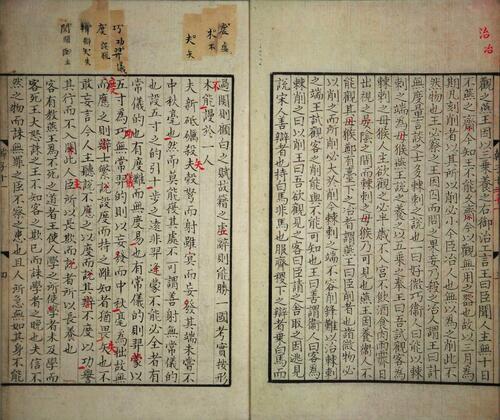 治冶
觀之燕王因以三乘養之右御冶工言王曰臣聞人主無十日
不燕之齋今知王不能久齋今以觀無用之器也故以三月為
期凡刻削者以其所以削必小今臣冶人也無以為之削此不
然物也王必察之王因囚而問之果妄乃殺之冶人謂王曰計
無度量言談之士多棘刺之說也一曰好微巧衛人曰能以棘
刺之端為母猴燕王說之養之以五乘之奉王曰吾試觀客為
棘刺之母猴客曰人主欲觀之必半歲不入宮不飲酒食肉雨霽日
出視之晏陰之間而棘刺之母猴乃可見也燕王因養衛人不
能觀其母猴鄭有臺下之冶者謂燕王曰臣削者也諸微物必
以削削之而所削必大於削今棘刺之端不容削鋒難以治棘刺
之端王試觀客之削能與不能可知也王曰善謂衛人曰客為
棘削之曰以削王曰吾欲觀見之客曰臣請之舍取之因逃
說宋人善辯者也持白馬非馬也服齊稷下之辯者乘白馬而
過關則顧白馬之賦故籍之虛辭則能勝一國考實按形
不能謾於一人
夫新砥礪殺矢彀弩而射雖冥而妄發其端未嘗不
中秋毫也然而莫能復其處不可謂善射無常儀的
也設五寸之的引十步之遠非羿逢蒙不能必全者有
常儀的也有度難而無度易也有常儀的則羿逢蒙以
五寸為巧無常羿的則以妄發而中秋毫為拙故無度
而應之則辯士繁說設度而持之雖知者猶畏失也不
敢妄言今人主聽說不應之以度而說其辯不度以功譽
其行而不入關此人臣所以長欺而說者所以長養也
客有教燕王為不死之道者王使人學之所使學者未及學而
客死王大怒誅之王不知客之欺己而誅學者之晚也夫信不
然之物而誅無罪之臣不察之患也且人所急無如其身不能